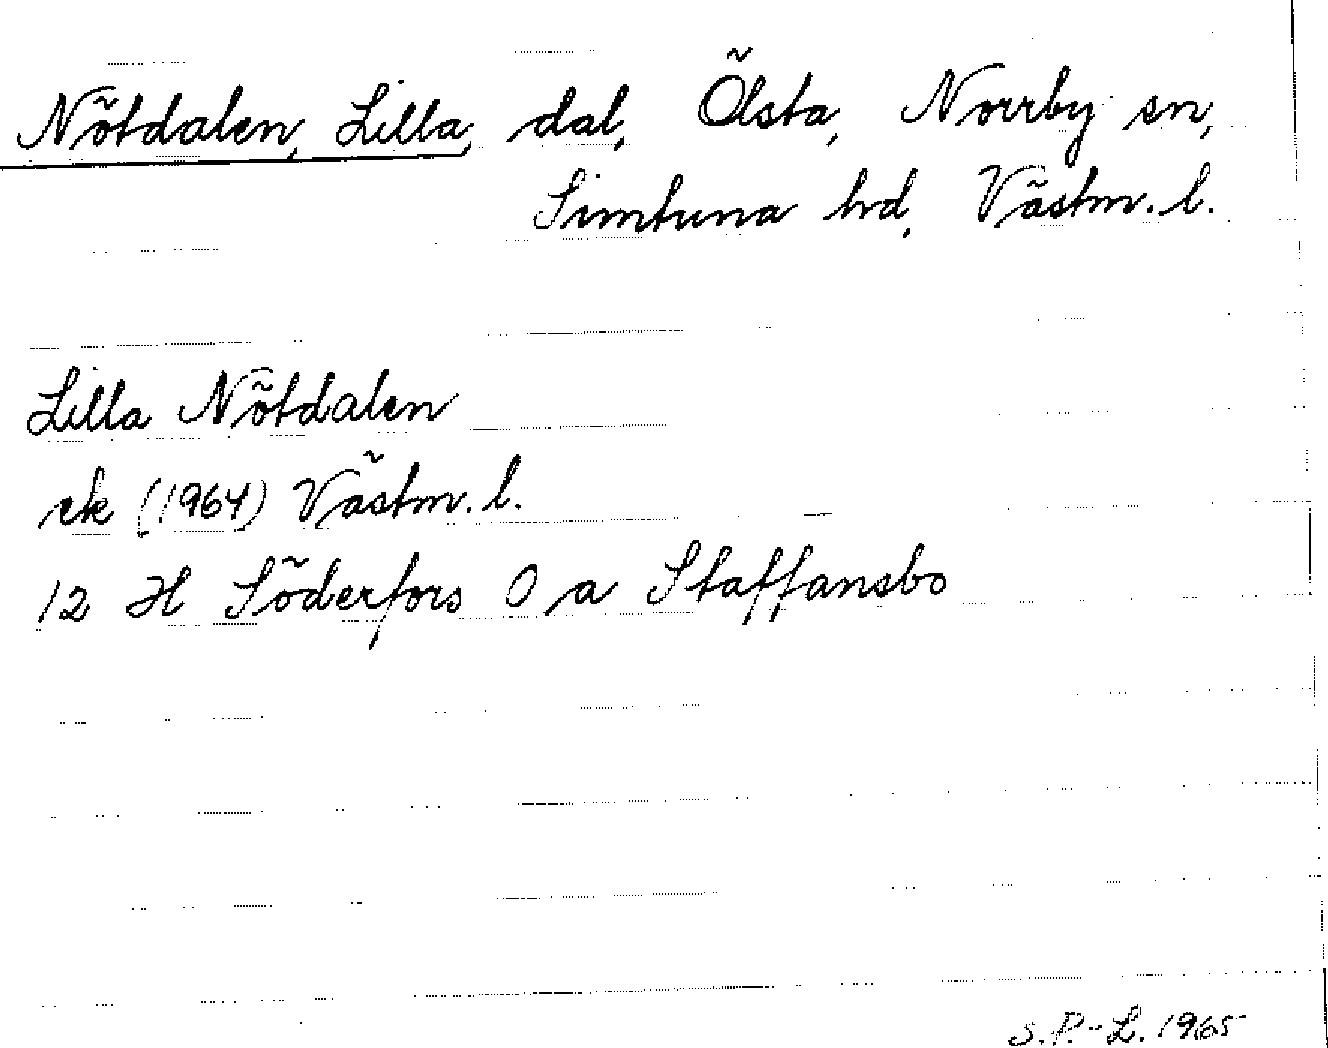 Nötdalen, Lilla, dal, Ölsta, Norrby sn,
Simtuna hd, Västm. l.
Lilla Nötdalen
ek (1964) Västm. l.
12 H Söderfors 0 a Staffansbo
S. P.-L. 1965